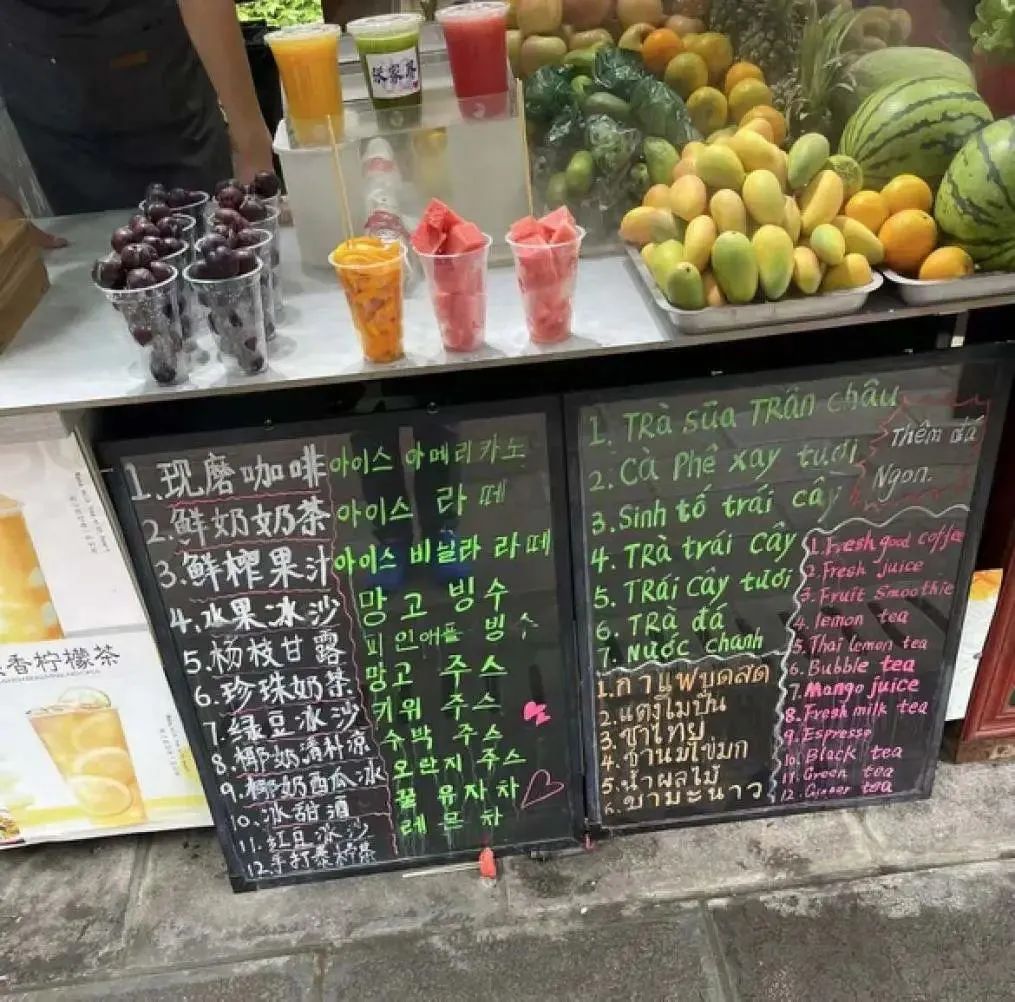 张家界
1.现磨咖啡
2.鲜奶奶茶
3.鲜榨果汁
4.水果冰沙
5.杨枝甘露
6.珍珠奶茶
7.绿豆冰沙
8.椰奶清朴凉
9.椰奶西瓜冰
10.冰甜酒
11.红豆冰沙
12.手打柠茶
아이스 아메리카노
아이스 라떼
아이스 비닐라 라떼
망고 빙수
피인애플 빙수
망고 주스
키위 주스
수박 주스
오란지 주스
꿀 유자차
레몬차
1. TRà sữa TRân châu
2. Cà Phê xay tươi
3. Sinh tố trái cây
4. TRà trái cây
5. TRái cây tươi
6. TRà đá
7. Nước chanh
Thêm đá
Ngon.
1.กาแฟบดสด
2.แตงโมปั่น
3.ชาไทย
4.ชานมไข่มุก
5.น้ำผลไม้
6.ชามะนาว
1. Fresh good coffee
2. Fresh juice
3. Fruit smoothie
4. lemon tea
5. Thai lemon tea
6. Bubble tea
7. Mango juice
8. Fresh milk tea
9. Espresso
10. Black tea
11. Green tea
12. Ginger tea
香柠檬茶